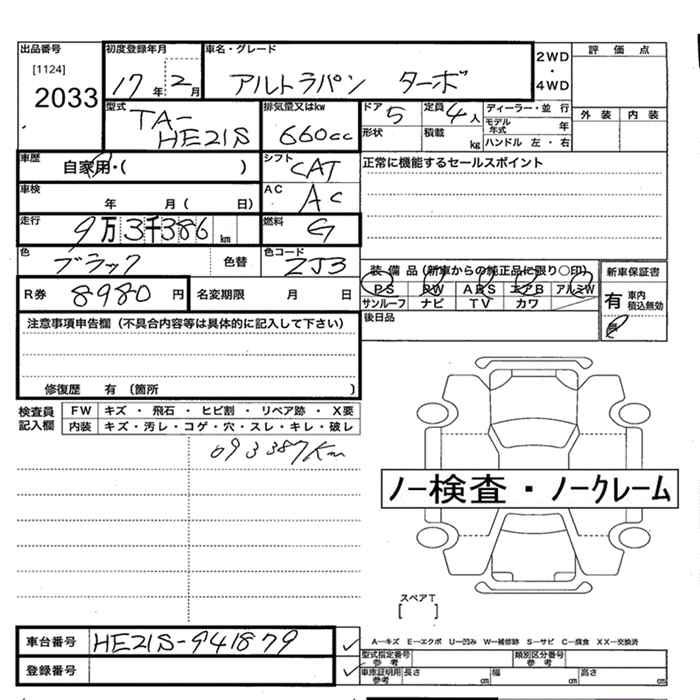 出品番号 初度登録年月 車名・グレード 評価点
[1124] 2033 17年 2月 アルトラパン ターボ 2WD・4WD
型式 TA-HE21S 排気量又はkw 660cc ドア 5 定員 4人 ディーラー・並行 外装 内装
形状 積載 kg モデル年式 年 ハンドル 左・右
車歴 自家用・( ) シフト CAT 正常に機能するセールスポイント
車検 年 月( 日) AC AC
走行 9万3千386km 燃料 G
色 ブラック 色替 色コード ZJ3 装備品(新車からの純正品に限り○印) 新車保証書
R券 8980円 名変期限 月 日 PS PW ABS エアB アルミW 有 車内積込無効
サンルーフ ナビ TV カワ
注意事項申告欄(不具合内容等は具体的に記入して下さい) 後日品
修復歴 有 〔箇所 〕
検査員記入欄 FW キズ・飛石・ヒビ割・リペア跡・X要
内装 キズ・汚レ・コゲ・穴・スレ・キレ・破レ
093387Km
ノー検査・ノークレーム
スペアT
[ ]
車台番号 HE21S-941879 A-キズ E-エクボ U-凹み W-補修跡 S-サビ C-腐食 XX-交換済
型式指定番号 参考 類別区分番号 参考
登録番号 車庫証明用参考 長さ cm 幅 cm 高さ cm